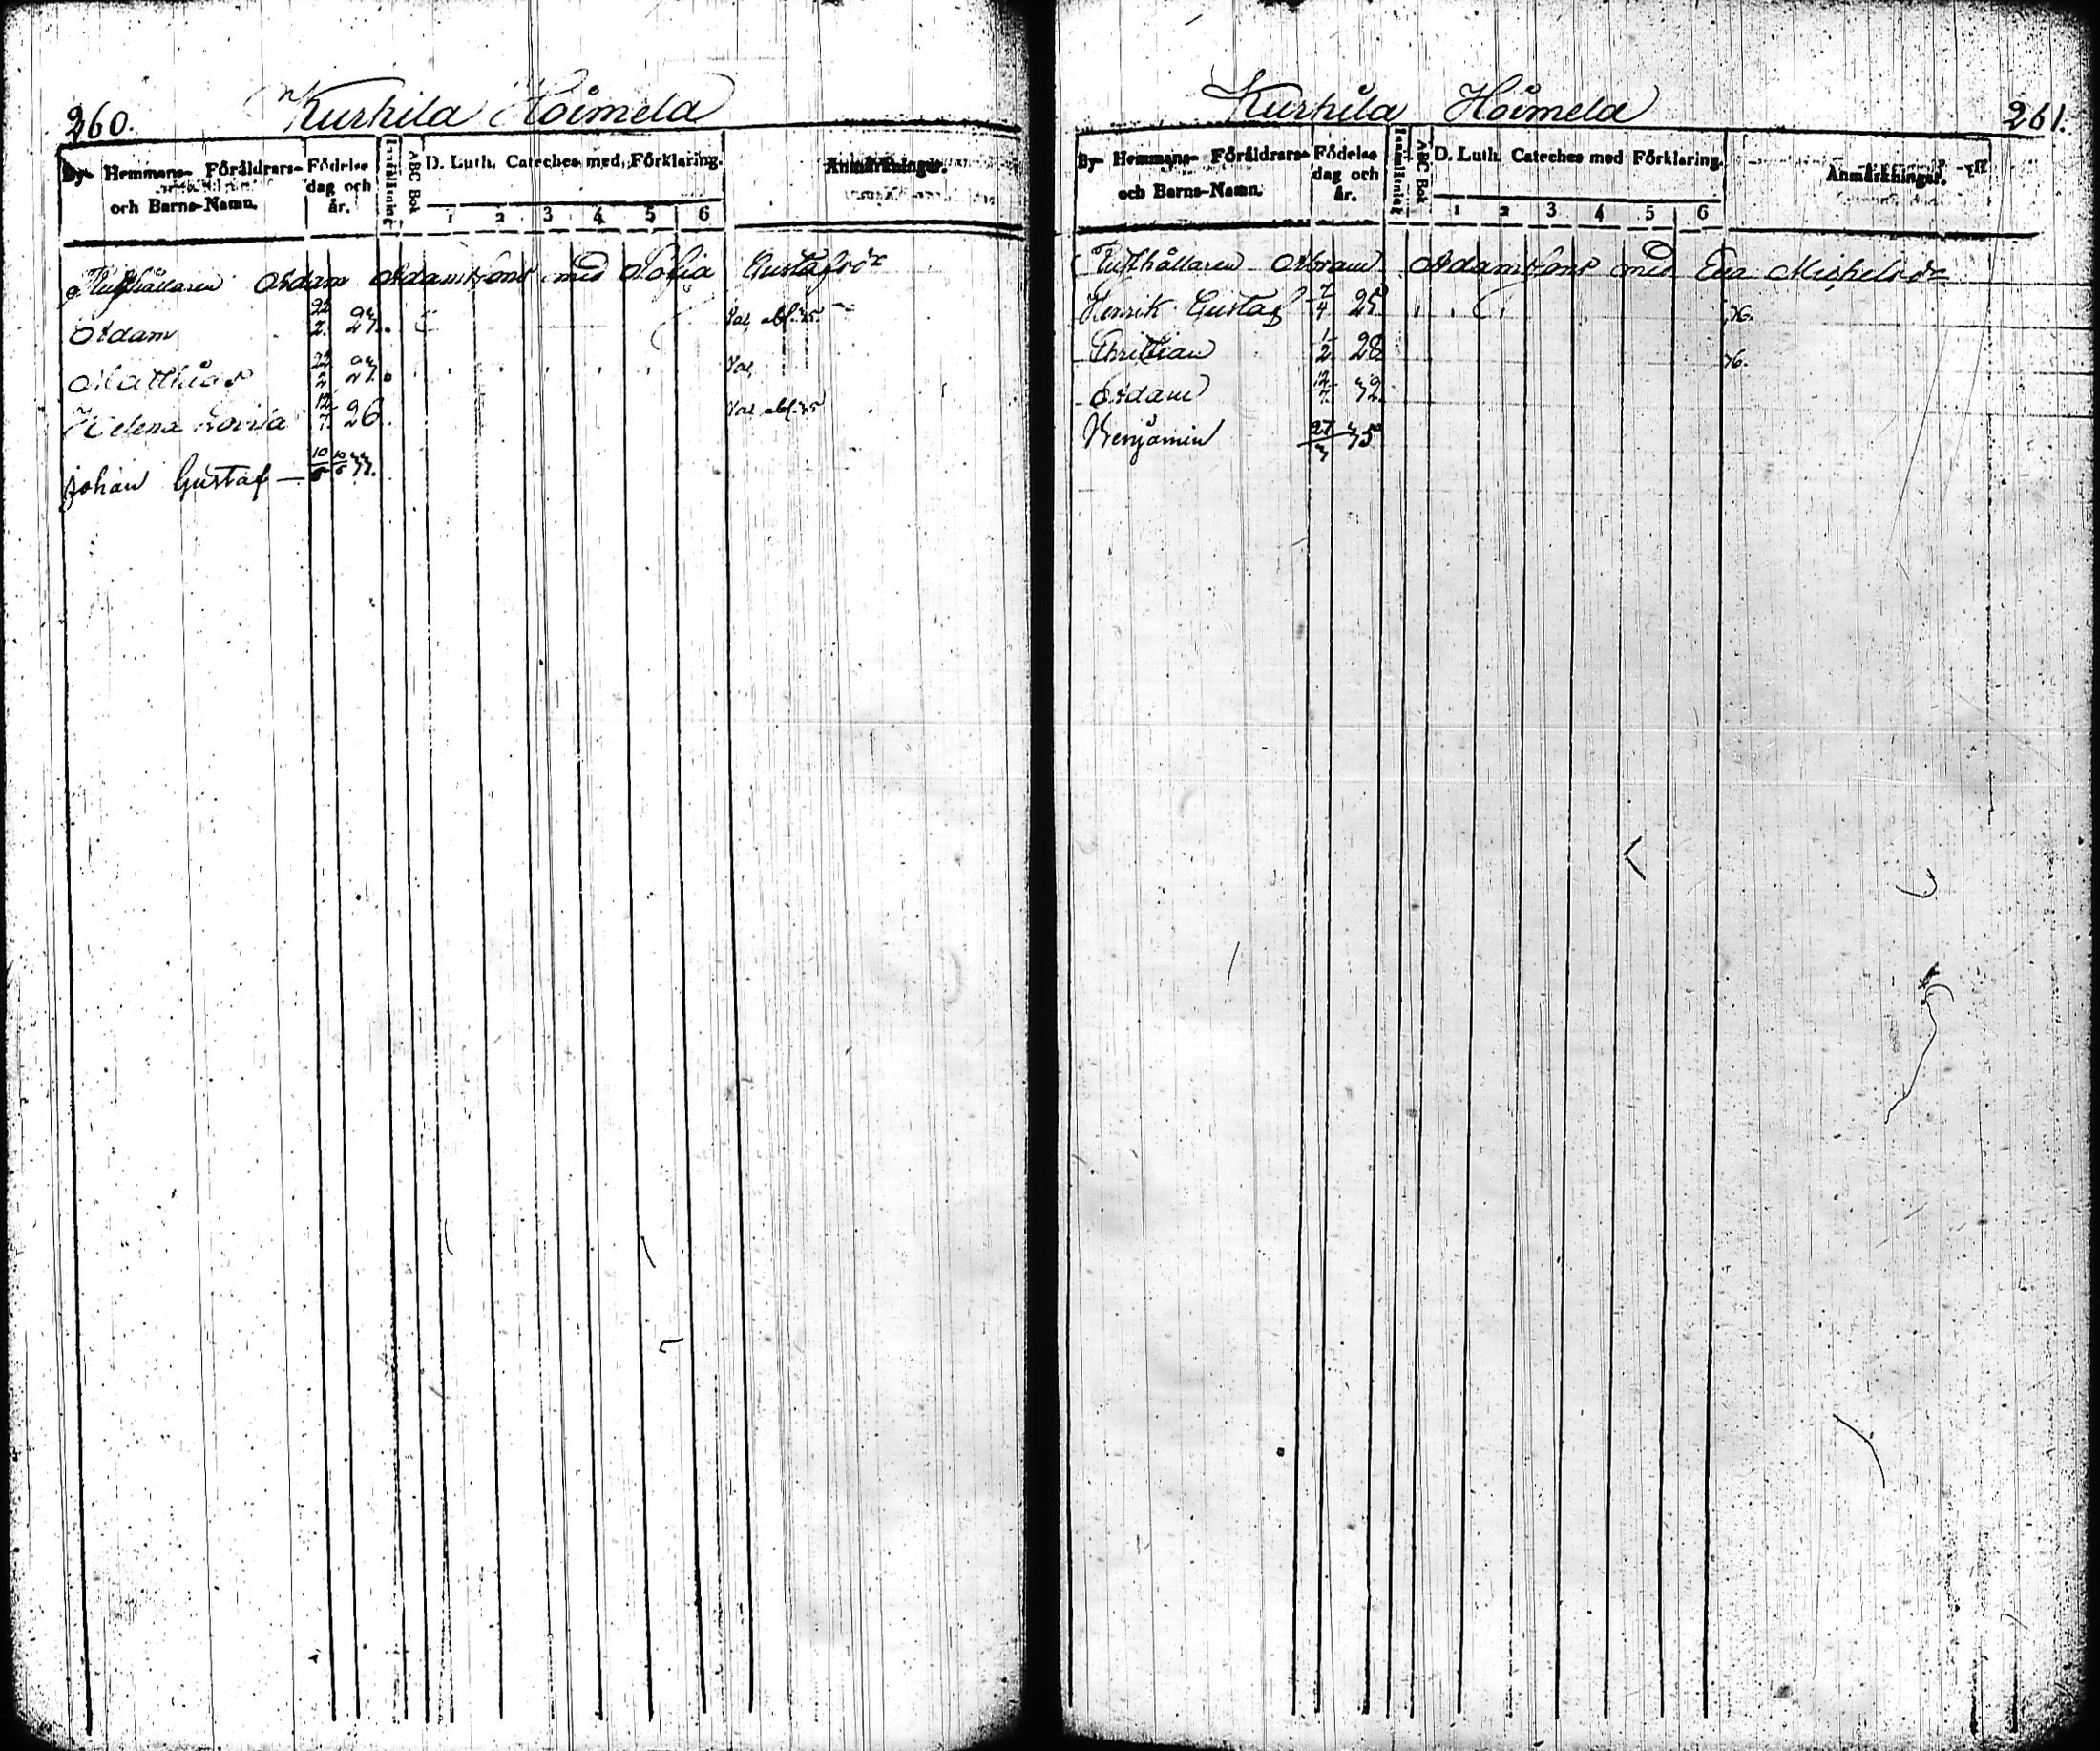 260.
Kurhila Hoimela
By- Hemmans- Föräldrars- och Barns-Namn.
Födelse dag och år.
ABC Bok
D. Luth. Cateches med Förklaring.
1 2 3 4 5 6
Anmärkningar.
Rusthållaren Adam Adamssons med Sofia Gustafsdr
Adam 22/2. 27.
Matthias 22/2 27.
Helena Lovisa 12/7. 26
Johan Gustaf — 10/6 10/6 33.
261.
Kurhila Hoimela
By- Hemmans- Föräldrars- och Barns-Namn.
Födelse dag och år.
Innanläsning
ABC Bok
D. Luth. Cateches med Förklaring.
1 2 3 4 5 6
Anmärkningar.
Rusthållaren Abram Adamssons med Eva Michelsdr
Henrik Gustaf 7/4 25 36.
Christian 1/2 28 36.
Adam 12/7. 32.
Benjamin 27/3 35